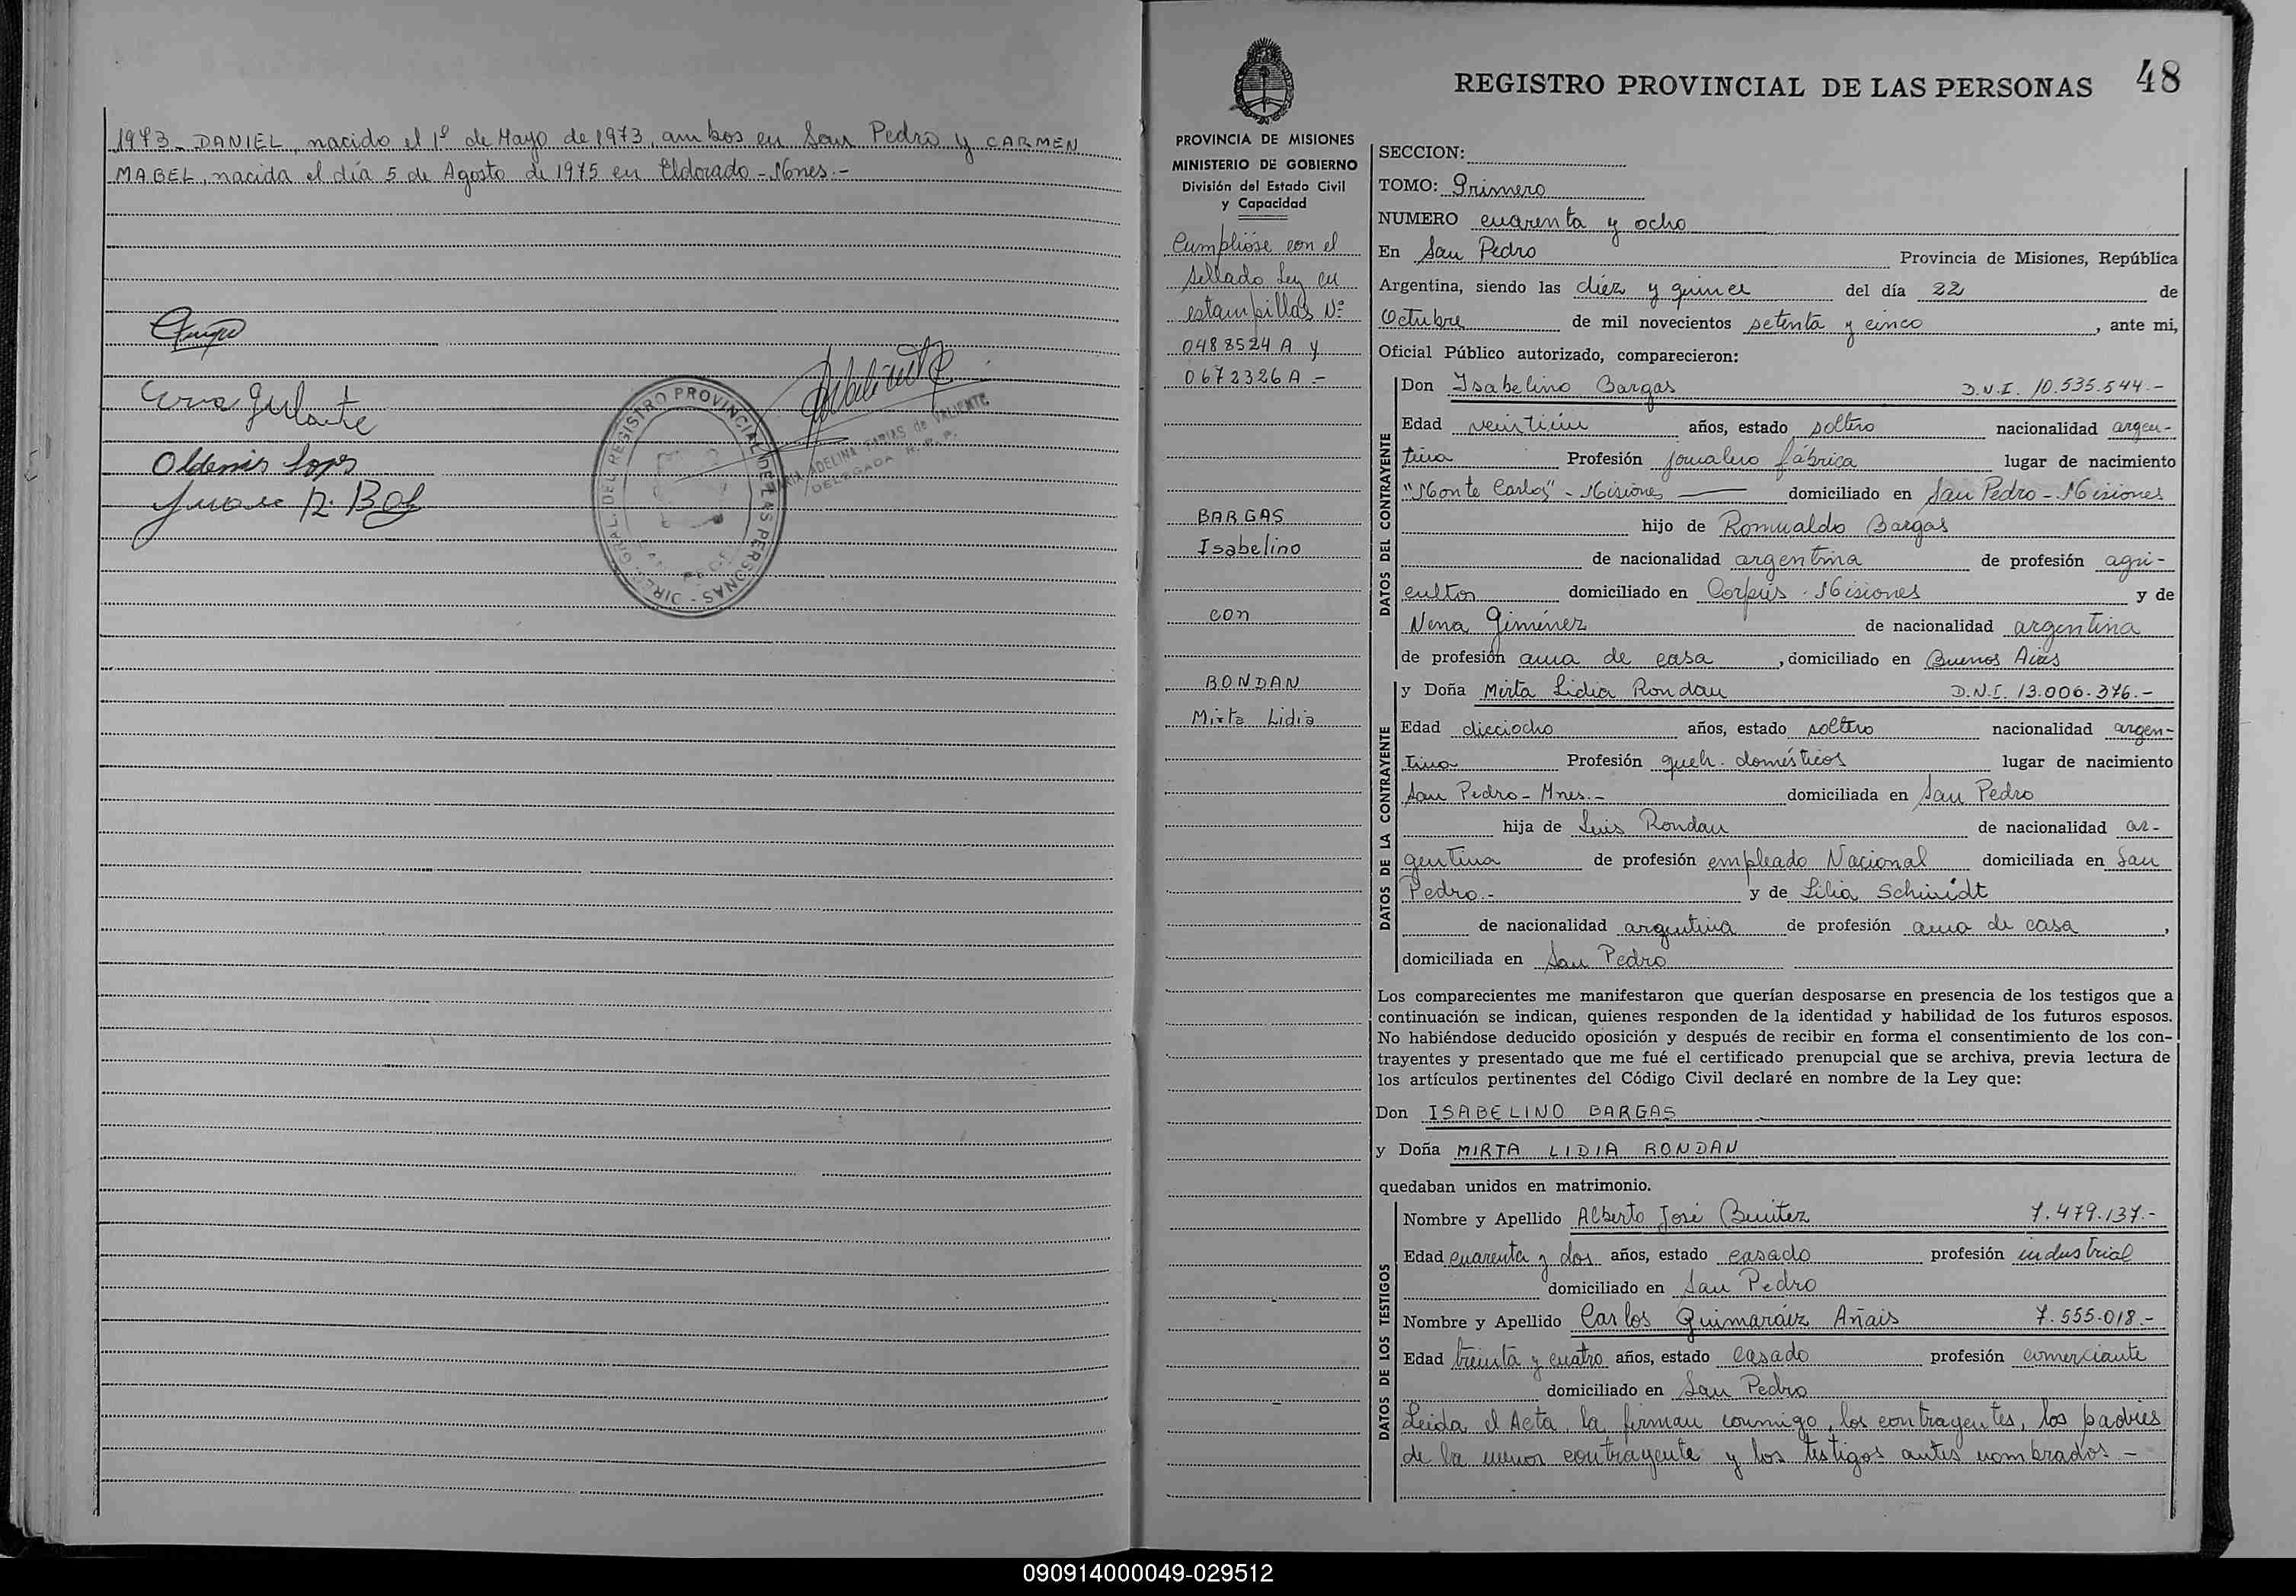 1973- DANIEL, nacido el 1º de Mayo de 1973, ambos en San Pedro y CARMEN
MABEL, nacida el día 5 de Agosto de 1975 en Eldorado - Mnes.-
REGISTRO PROVINCIAL DE LAS PERSONAS
DELEGADA R.P.P.
REGISTRO PROVINCIAL DE LAS PERSONAS 48
PROVINCIA DE MISIONES
MINISTERIO DE GOBIERNO
División del Estado Civil
y Capacidad
Cumplióse con el
sellado Ley en
estampillas Nº
0488524 A y
0672326 A.-
BARGAS
Isabelino
con
RONDAN
Mirta Lidia
SECCION:
TOMO: Primero
NUMERO cuarenta y ocho
En San Pedro Provincia de Misiones, República
Argentina, siendo las diez y quince del día 22 de
Octubre de mil novecientos setenta y cinco, ante mi,
Oficial Público autorizado, comparecieron:
DATOS DEL CONTRAYENTE
Don Isabelino Bargas D.N.I. 10.535.544.-
Edad veintiún años, estado soltero nacionalidad argen-
tina Profesión jornalero fábrica lugar de nacimiento
"Monte Carlos" - Misiones domiciliado en San Pedro - Misiones
hijo de Romualdo Bargas
de nacionalidad argentina de profesión agri-
cultor domiciliado en Corpus - Misiones y de
Nena Giménez de nacionalidad argentina
de profesión ama de casa, domiciliado en Buenos Aires
DATOS DE LA CONTRAYENTE
y Doña Mirta Lidia Rondan D.N.I. 13.006.376.-
Edad dieciocho años, estado soltero nacionalidad argen-
tina Profesión queh. domésticos lugar de nacimiento
San Pedro - Mnes.- domiciliada en San Pedro
hija de Luis Rondan de nacionalidad ar-
gentina de profesión empleado Nacional domiciliada en San
Pedro.- y de Lilia Schmidt
de nacionalidad argentina de profesión ama de casa,
domiciliada en San Pedro
Los comparecientes me manifestaron que querían desposarse en presencia de los testigos que a
continuación se indican, quienes responden de la identidad y habilidad de los futuros esposos.
No habiéndose deducido oposición y después de recibir en forma el consentimiento de los con-
trayentes y presentado que me fué el certificado prenupcial que se archiva, previa lectura de
los artículos pertinentes del Código Civil declaré en nombre de la Ley que:
Don ISABELINO BARGAS
y Doña MIRTA LIDIA RONDAN
quedaban unidos en matrimonio.
DATOS DE LOS TESTIGOS
Nombre y Apellido Alberto José Benitez 7.479.137.-
Edad cuarenta y dos años, estado casado profesión industrial
domiciliado en San Pedro
Nombre y Apellido Carlos Guimaráiz Añais 7.555.018.-
Edad treinta y cuatro años, estado casado profesión comerciante
domiciliado en San Pedro
Leida el Acta, la firman conmigo, los contrayentes, los padres
de la menor contrayente y los testigos antes nombrados.-
090914000049-029512